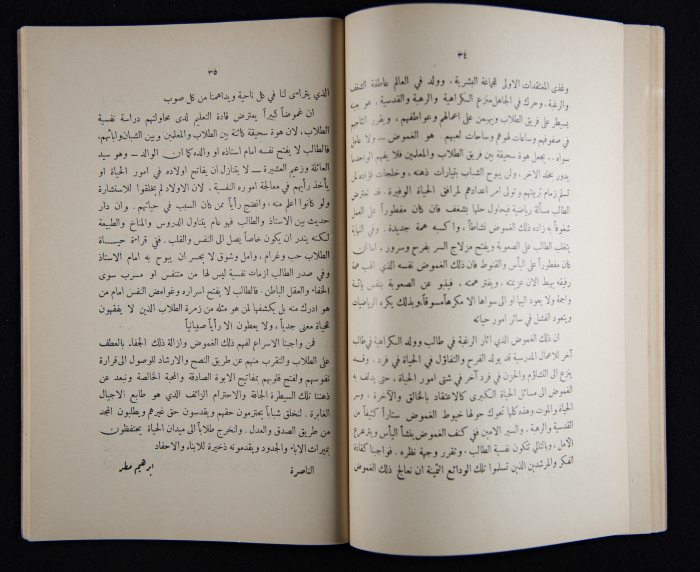 ٣٤
وغذى المعتقدات الاولى للجماعة البشرية ، وولد في العالم عاطفة الشغف
والرغبة . وحرك في الجاهل منزع الكراهية والرهبة والقدسية . هو بعينه
يسيطر على فريق الطلاب ويهيمن على اعمالهم وعواطفهم ، ويقرر انتاجهم
في صفوفهم وساعات لهوهم وساحات لعبهم . هو الغموض — ولا عامل
سواه .. يجعل هوة سحيقة بين فريق الطلاب والمعلمين فلا يفهم الواحد ما
يدور بخلد الآخر . ولن يبوح الشاب بتيارات ذهنه ، وخلجات فؤاده لمن
تسلم زمام تربيتهم وتولى امر اعدادهم لمرافق الحياة الوفيرة . قد تعترض
الطالب مسألة رياضية فيحاول حلها بشغف فان كان مفطوراً على العمل
شغوفاً به زاده ذلك الغموض نشاطاً ، واكسبه همة جديدة . وفي النهاية
يتغلب الطالب على الصعوبة ويفتح مزلاج السر بفرح وسرور ، اما ان
كان مفطوراً على اليأس والقنوط فان ذلك الغموض نفسه الذي الهب همة
رفيقه يهبط الان عزيمته ، ويفتر همته ، فينبو عن الصعوبة بنفس يائسة
واجمة ولا يعود اليها او الى سواها الا مكرهاً مسوقاً وبذلك يكره الرياضيات
ويتعود الفشل في سائر امور حياته
ان ذلك الغموض الذي اثار الرغبة في طالب وولد الكراهية في طالب
آخر للاعمال المدرسية قد يولد الفرح والتفاؤل في الحياة في فرد . ونفسه
ينزع الى التشاؤم والحزن في فرد آخر في شتى امور الحياة ، حتى يدلف به
الغموض الى مسائل الحياة الكبرى كالاعتقاد بالخالق والآخرة ، وسر
الحياة والموت وهذه كلها تحوك حولها خيوط الغموض ستاراً كثيفاً من
القدسية والرهبة . والسير الامين في كنف الغموض ينشأ اليأس ويترعرع
الأمل ، وبالتالي تتكون نفسية الطالب ، وتقرر وجهة نظره . فواجبنا كقادة
الفكر والمرشدين الذين تسلموا تلك الودائع الثمينة ان نعالج ذلك الغموض
٣٥
الذي يترامى لنا في كل ناحية ويداهمنا من كل صوب
ان غموضاً كبيراً يعترض قادة التعليم لدى محاولتهم دراسة نفسية
الطلاب . لان هوة سحيقة كائنة بين الطلاب والمعلمين وبين الشبان وابائهم .
فالطالب لا يفتح نفسه امام استاذه او والده كما ان الوالد — وهو سيد
العائلة وزعيم العشيرة — لا يتنازل ان يفاتح اولاده في امور الحياة او
يأخذ رأيهم في معالجة اموره النفسية . لان الاولاد لم يخلقوا للاستشارة
ولو كانوا اعلم منه ، وانضج رأياً ممن كان السبب في حياتهم . وان دار
حديث بين الاستاذ والطالب فهو عام يتناول الدروس والمناخ والطبيعة
لكنه يندر ان يكون خاصاً يصل الى النفس والقلب . ففي قرارة حياة
الطلاب حب وغرام ، وامل وشوق لا يجسر ان يبوح به امام الاستاذ
وفي صدر الطالب ازمات نفسية ليس لها من متنفس او مسرب سوى
الخفاء والعقل الباطن . فالطالب لا يفتح اسراره وغوامض النفس امام من
هو ادرك منه بل يكشفها لمن هو مثله من زمرة الطلاب الذين لا يفقهون
للحياة معنى جدياً ، ولا يعطون الا رأياً صبيانياً
فمن واجبنا الاسراع لفهم ذلك الغموض وازالة ذلك الجفاء بالعطف
على الطلاب والتقرب منهم عن طريق النصح والارشاد للوصول الى قرارة
نفوسهم ولفتح قلوبهم بمفاتيح الابوة الصادقة والمحبة الخالصة ونبعد عن
ذهننا تلك السيطرة الجافة والاحترام الزائف الذي هو طابع الاجيال
الغابرة . لنخلق شباباً يحترمون حقهم ويقدسون حق غيرهم ويطلبون المجد
من طريق الصدق والعدل . ولنخرج طلاباً الى ميدان الحياة يحتفظون
بميراث الاباء والجدود ويقدمونه ذخيرة للابناء والاحفاد
الناصرة ابرهيم مطر